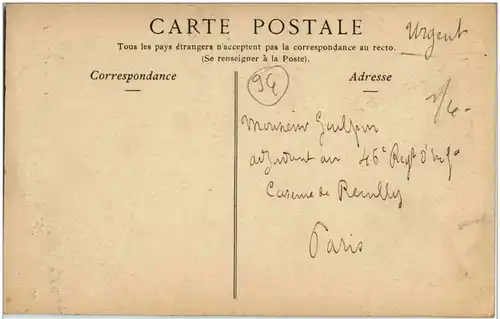 CARTE POSTALE
Urgent
Tous les pays étrangers n'acceptent pas la correspondance au recto.
(Se renseigner à la Poste).
Correspondance
Adresse
94
Monsieur
adjudant au 46e Regt d'Infie
Caserne de Reuilly
Paris